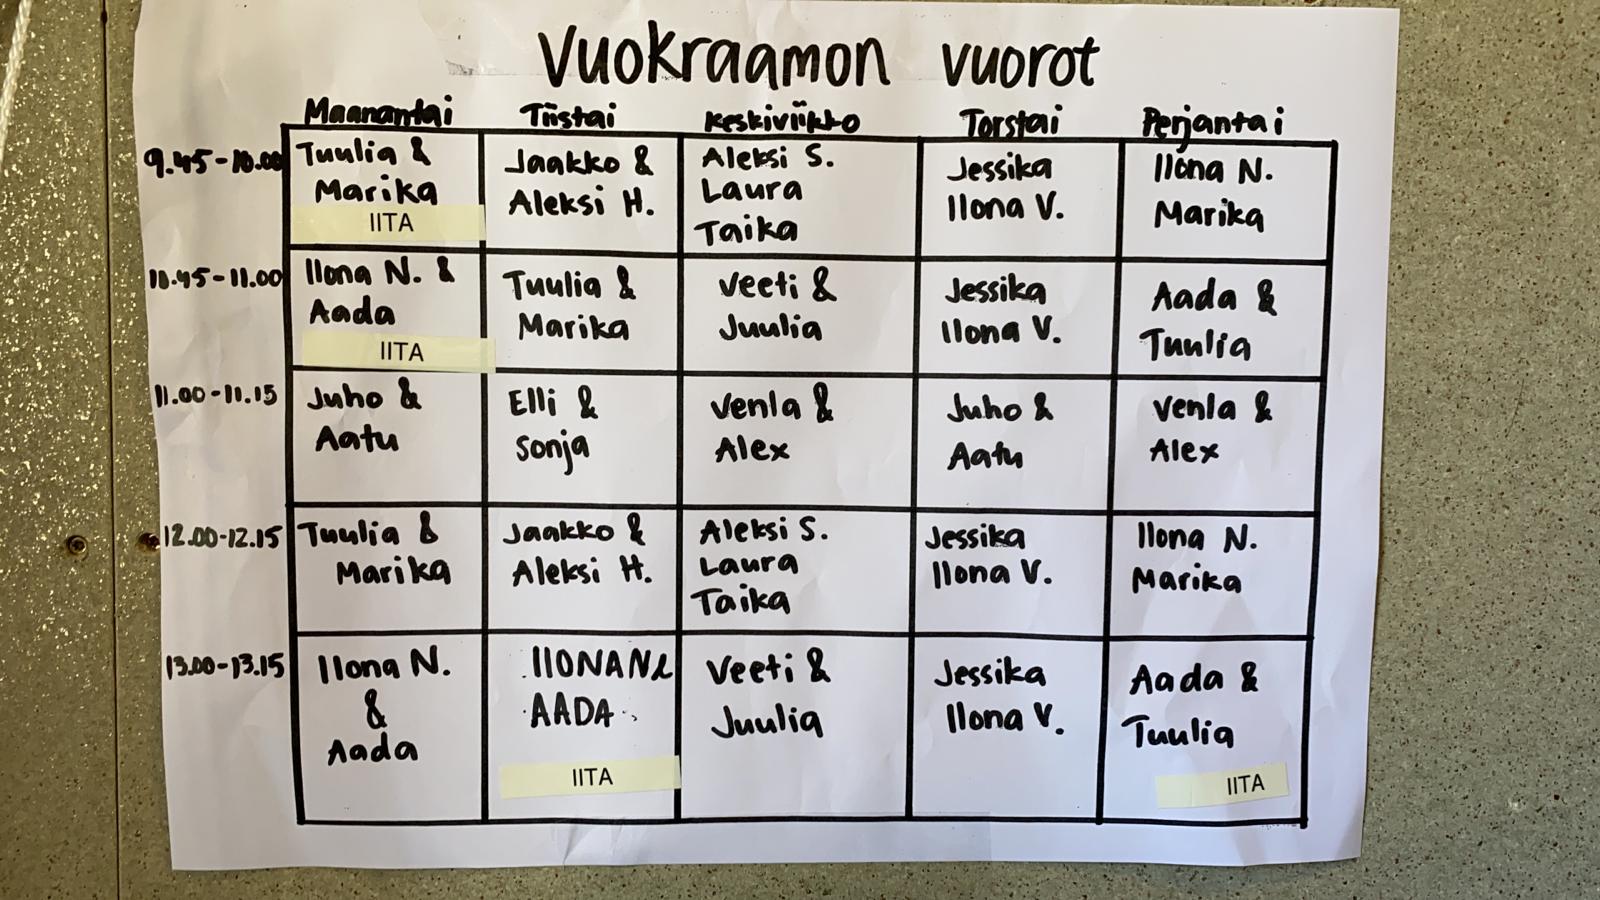 Vuokraamon vuorot
Maanantai Tiistai Keskiviikko Torstai Perjantai
9.45-10.00
Tuulia &
Marika
IITA
Jaakko &
Aleksi H.
Aleksi S.
Laura
Taika
Jessika
Ilona V.
Ilona N.
Marika
10.45-11.00
Ilona N. &
Aada
IITA
Tuulia &
Marika
Veeti &
Juulia
Jessika
Ilona V.
Aada &
Tuulia
11.00-11.15
Juho &
Aatu
Elli &
Sonja
Venla &
Alex
Juho &
Aatu
Venla &
Alex
12.00-12.15
Tuulia &
Marika
Jaakko &
Aleksi H.
Aleksi S.
Laura
Taika
Jessika
Ilona V.
Ilona N.
Marika
13.00-13.15
Ilona N.
&
Aada
IlONA N &
AADA
IITA
Veeti &
Juulia
Jessika
Ilona V.
Aada &
Tuulia
IITA